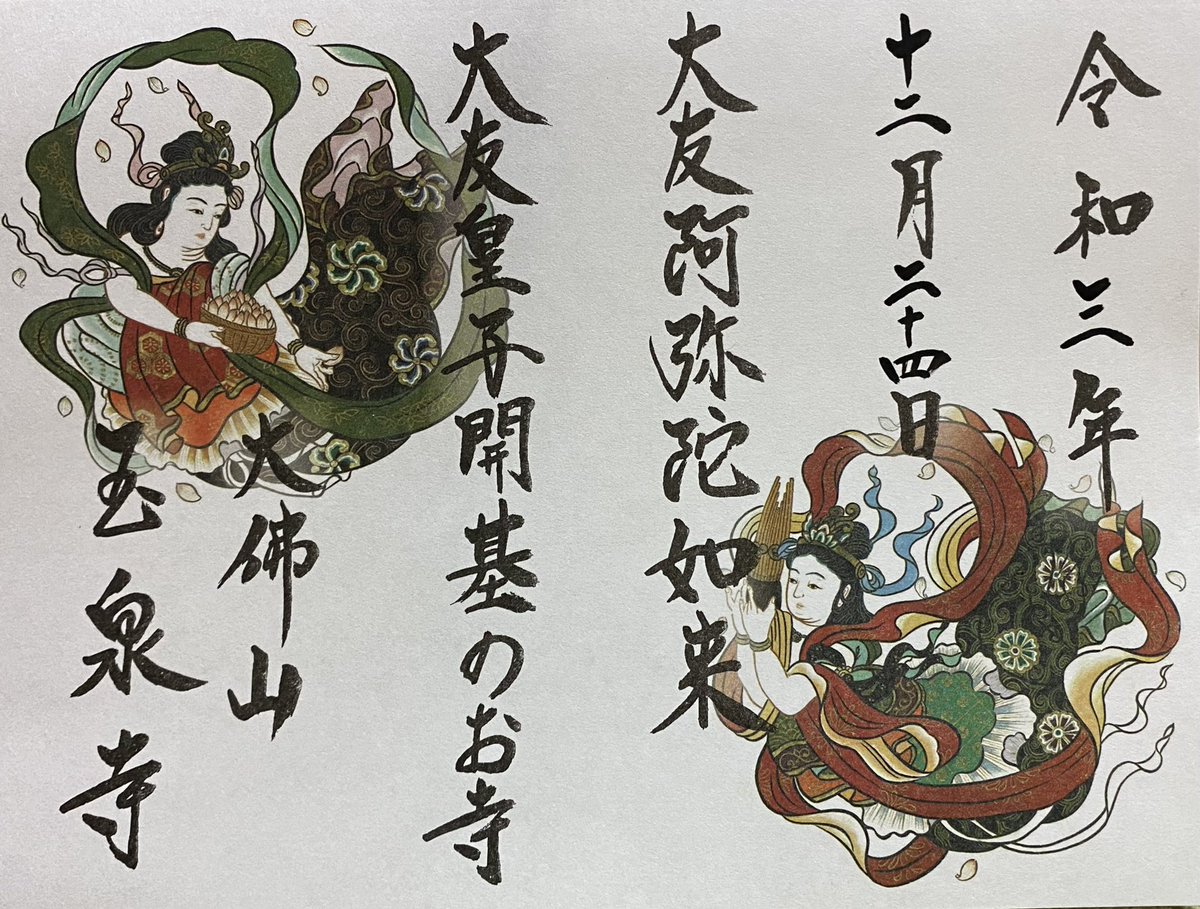 令和三年
十二月二十四日
大友阿弥陀如来
大友皇子開基のお寺
大佛山
玉泉寺